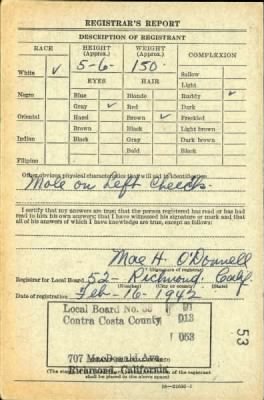 REGISTRAR'S REPORT
DESCRIPTION OF REGISTRANT
RACE HEIGHT (Approx.) WEIGHT (Approx.) COMPLEXION
5-6 150
White ✓ Sallow
EYES HAIR Light
Negro Blue Blonde Ruddy ✓
Gray ✓ Red Dark
Oriental Hazel Brown ✓ Freckled
Brown Black Light brown
Indian Black Gray Dark brown
Bald Black
Filipino
Other obvious physical characteristics that will aid in identification
Mole on Left Cheek.
I certify that my answers are true; that the person registered has read or has had
read to him his own answers; that I have witnessed his signature or mark and that
all of his answers of which I have knowledge are true, except as follows:
Mae H. O'Donnell
(Signature of registrar)
Registrar for Local Board 52 - Richmond, Calif.
(Number) (City or county) (State)
Date of registration Feb-16-1942
Local Board No.
Contra Costa County 013
053
53
707 MacDonald Ave.
Richmond, California
(The of the registrant
shall be placed in the above space)